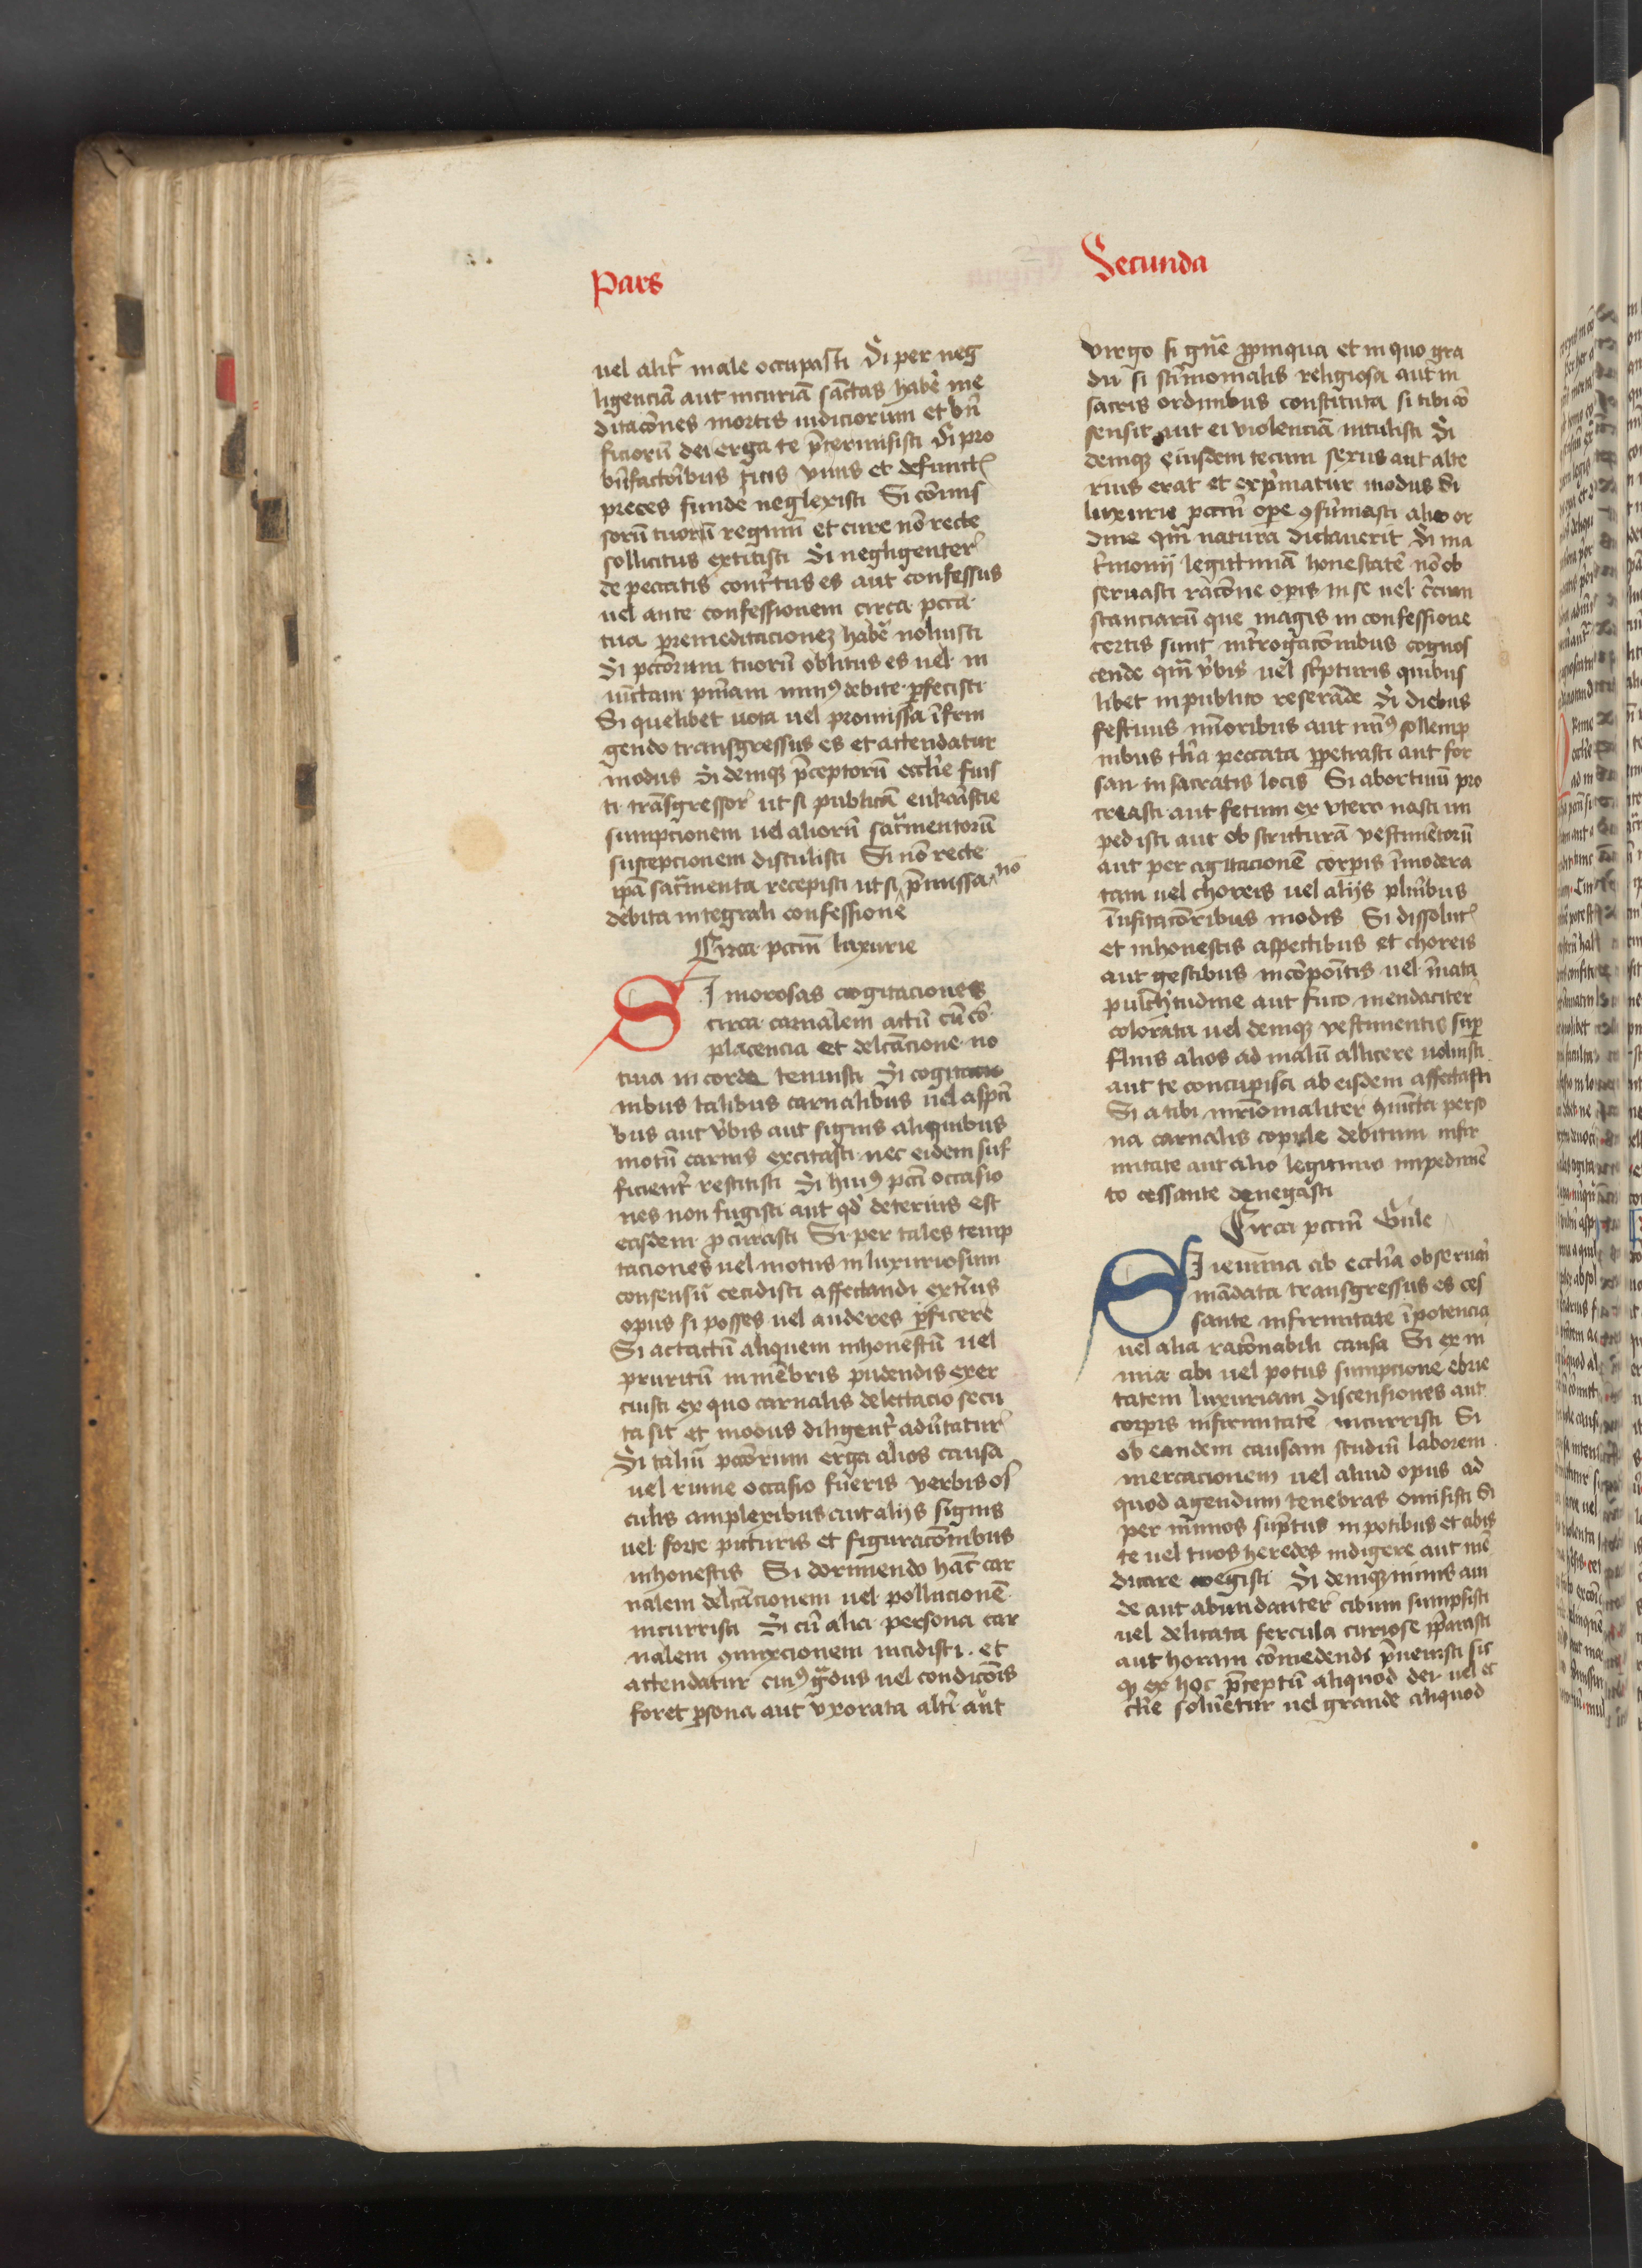 Pars
Secunda
uel alit̃ male occupasti Si per neg
ligenciã aut incuriã sãctas habẽ me
ditacõnes mortis iudiciorum et bñ
ficiorũ dei erga te p̃termisisti Si pro
bñfactoribus tuis viuis et defunct
preces funde neglexisti Si cõmis
sorũ tuorũ regimĩ et cure nõ recte
sollicitus extitisti Si negligenter
de peccatis cont̃tus es aut confessus
uel ante confessionem circa pcca
tua premeditacionez habẽ noluisti
Si pctõrum tuorũ oblitus es uel in
iũctam pñiam minꝰ debite ꝑfecisti
Si quelibet uota uel promissa ĩfrin
gendo transgressus es et attendatur
modus Si demqꝫ p̃ceptorũ eccl̃ie fuis
ti trãsgressor ut si publicã eukaristie
sumpcionem uel aliorũ sac̃mentorũ
suscepcionem distulisti Si nõ recte
ip̃a sac̃menta recepisti ut si p̃missa nõ
debita integrali confessione
Circa pctm̃ luxurie
Si morosas cogitaciones
circa carnalem actũ cũ cõ
placencia et delc̃acione no
tiua in corde tenuisti Si cogitacio
nibus talibus carnalibus uel aspcti
bus aut v̓bis aut signis aliquibus
motũ carnis excitasti nec eidem suf
ficient̃ restitisti Si huiꝰ pcti occasio
nes non fugisti aut qd̓ deterius est
easdem ꝓcurasti Si per tales temp
taciones uel motus in luxuriosum
consensũ cecidisti affectandi ext̓ius
opus si posses uel auderes ꝑficere
Si ac tactũ aliquem inhonestũ uel
pruritũ in mẽbris pudendis exer
cuisti ex quo carnalis delectacio secu
ta sit et modus diligent̃ adũtatur
Si taliũ pctõrum erga alios causa
uel ruine occasio fueris verbis os
culis amplexibus aut alijs signis
uel forte picturis et figuracõnibus
inhonestis Si dormiendo hãc car
nalem delc̃acionem uel pollucionẽ
incurristi Si cũ alia persona car
nalem ꝯmixcionem incidisti et
attendatur cuiꝰ g̃dus uel condicõis
foret ꝑsona aut vxorata alt̓i aut
virgo si gñe ꝓpinqua et in quo gra
du si st̓imonialis religiosa aut in
sacris ordinibus constituta si tibi cõ
sensit aut ei violenciã intulisti Si
demqꝫ eiusdem tecum sexus aut alte
rius erat et exp̓matur modus Si
luxurie pctm̃ oꝑe ꝯsũmasti alio or
dine qm̃ natura dictauerit Si ma
t̓monij legittimã honestatẽ nõ ob
seruasti racõne oꝑis in se uel c̓cum
stanciarũ que magis in confessione
certis sunt int̓rogacõnibus cognos
cende qm̃ v̓bis uel sc̓pturis quibus
libet in publico reserãde Si diebus
festiuis mĩoribus aut minꝰ sollemp
nibus tl̃ia peccata ꝑpetrasti aut for
san in sacratis locis Si abortiuũ pro
creasti aut fetum ex vtero nasci im
pedisti aut ob stricturã vestimẽtorũ
aut per agitacionẽ corꝑis ĩmodera
tam uel choreis uel alijs pluribus
ĩusitacõribus modis Si dissolut
et inhonestis aspectibus et choreis
aut gestibus incõpoĩtis uel ĩnata
pulch̓tudine aut fuco mendaciter
colorata uel demqꝫ vestimentis suꝑ
fluis alios ad malũ allicere uoluisti
aut te concupisci ab eisdem affectasti
Si a tibi mr̃iomaliter ꝯiũcta perso
na carnalis copule debitum infir
mitate aut alio legitimo impedimẽ
to cessante denegasti
Circa pctm̃ Gule
Si ieiunia ab eccl̃ia obseruari
mãdata transgressus es ces
sante infirmitate ĩpotencia
uel alia racõnabili causa Si ex ni
mia cibi uel potus sumpcione ebrie
tatem luxuriam discensiones aut
corꝑis infirmitatẽ incurristi Si
ob eandem causam studiũ laborem
mercacionem uel aliud opus ad
quod agendum tenebras omisisti Si
per nĩmios sũptus in potibus et cibis
te uel tuos heredes indigere aut mẽ
dicare coegisti Si demqꝫ nimis aui
de aut abundanter cibum sumpsisti
uel delicata fercula curiose p̃parasti
aut horam cõmedendi p̃uenisti sic
qꝫ ex hoc p̃ceptũ aliquod dei uel ec
cl̃ie solueretur uel grande aliquod